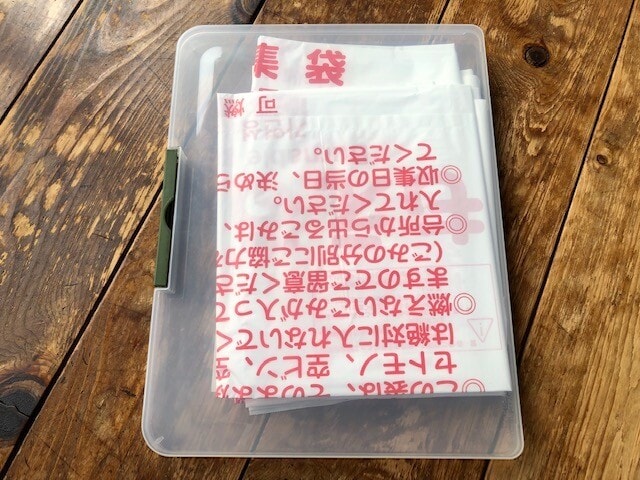 集 袋
可燃
◎この袋は、そのま
セトモノ、空ビン、空
は絶対に入れないでく
◎燃えないごみが入って
ますのでご留意くださ
(ごみの分別にご協力を
◎台所から出るごみは、
入れてください。
◎収集日の当日、決めら
てください。